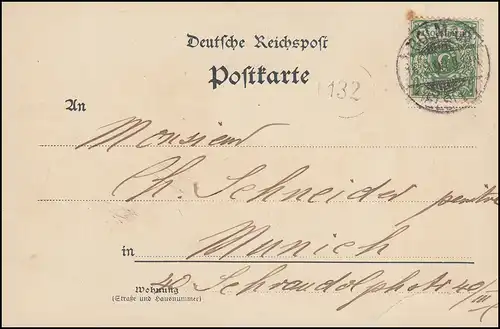 Deutsche Reichspost
Postkarte
132
An
Monsieur
Ch. Schneider peintre
in Munich
Wohnung
(Straße und Hausnummer)
40 Schraudolphstr 40/III